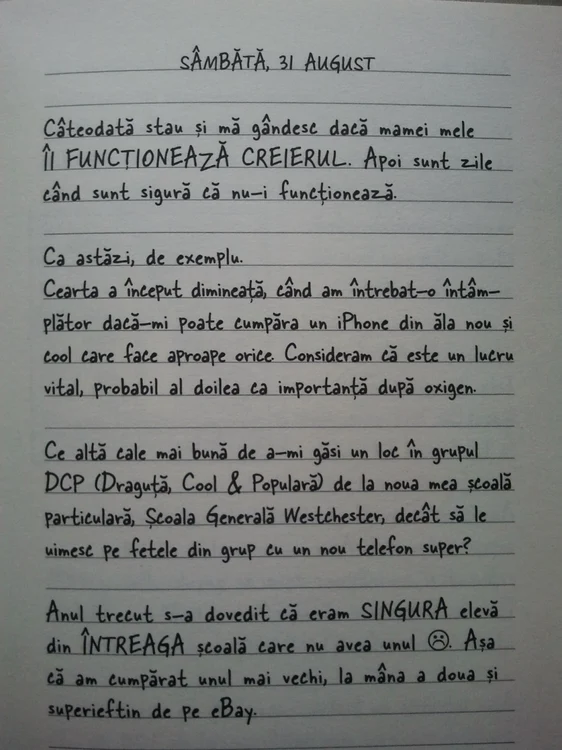 SÂMBĂTĂ, 31 AUGUST
Câteodată stau și mă gândesc dacă mamei mele
ÎI FUNCȚIONEAZĂ CREIERUL. Apoi sunt zile
când sunt sigură că nu-i funcționează.
Ca astăzi, de exemplu.
Cearta a început dimineață, când am întrebat-o întâm-
plător dacă-mi poate cumpăra un iPhone din ăla nou și
cool care face aproape orice. Consideram că este un lucru
vital, probabil al doilea ca importanță după oxigen.
Ce altă cale mai bună de a-mi găsi un loc în grupul
DCP (Draguță, Cool & Populară) de la noua mea școală
particulară, Școala Generală Westchester, decât să le
uimesc pe fetele din grup cu un nou telefon super?
Anul trecut s-a dovedit că eram SINGURA elevă
din ÎNTREAGA școală care nu avea unul ☹. Așa
că am cumpărat unul mai vechi, la mâna a doua și
superieftin de pe eBay.